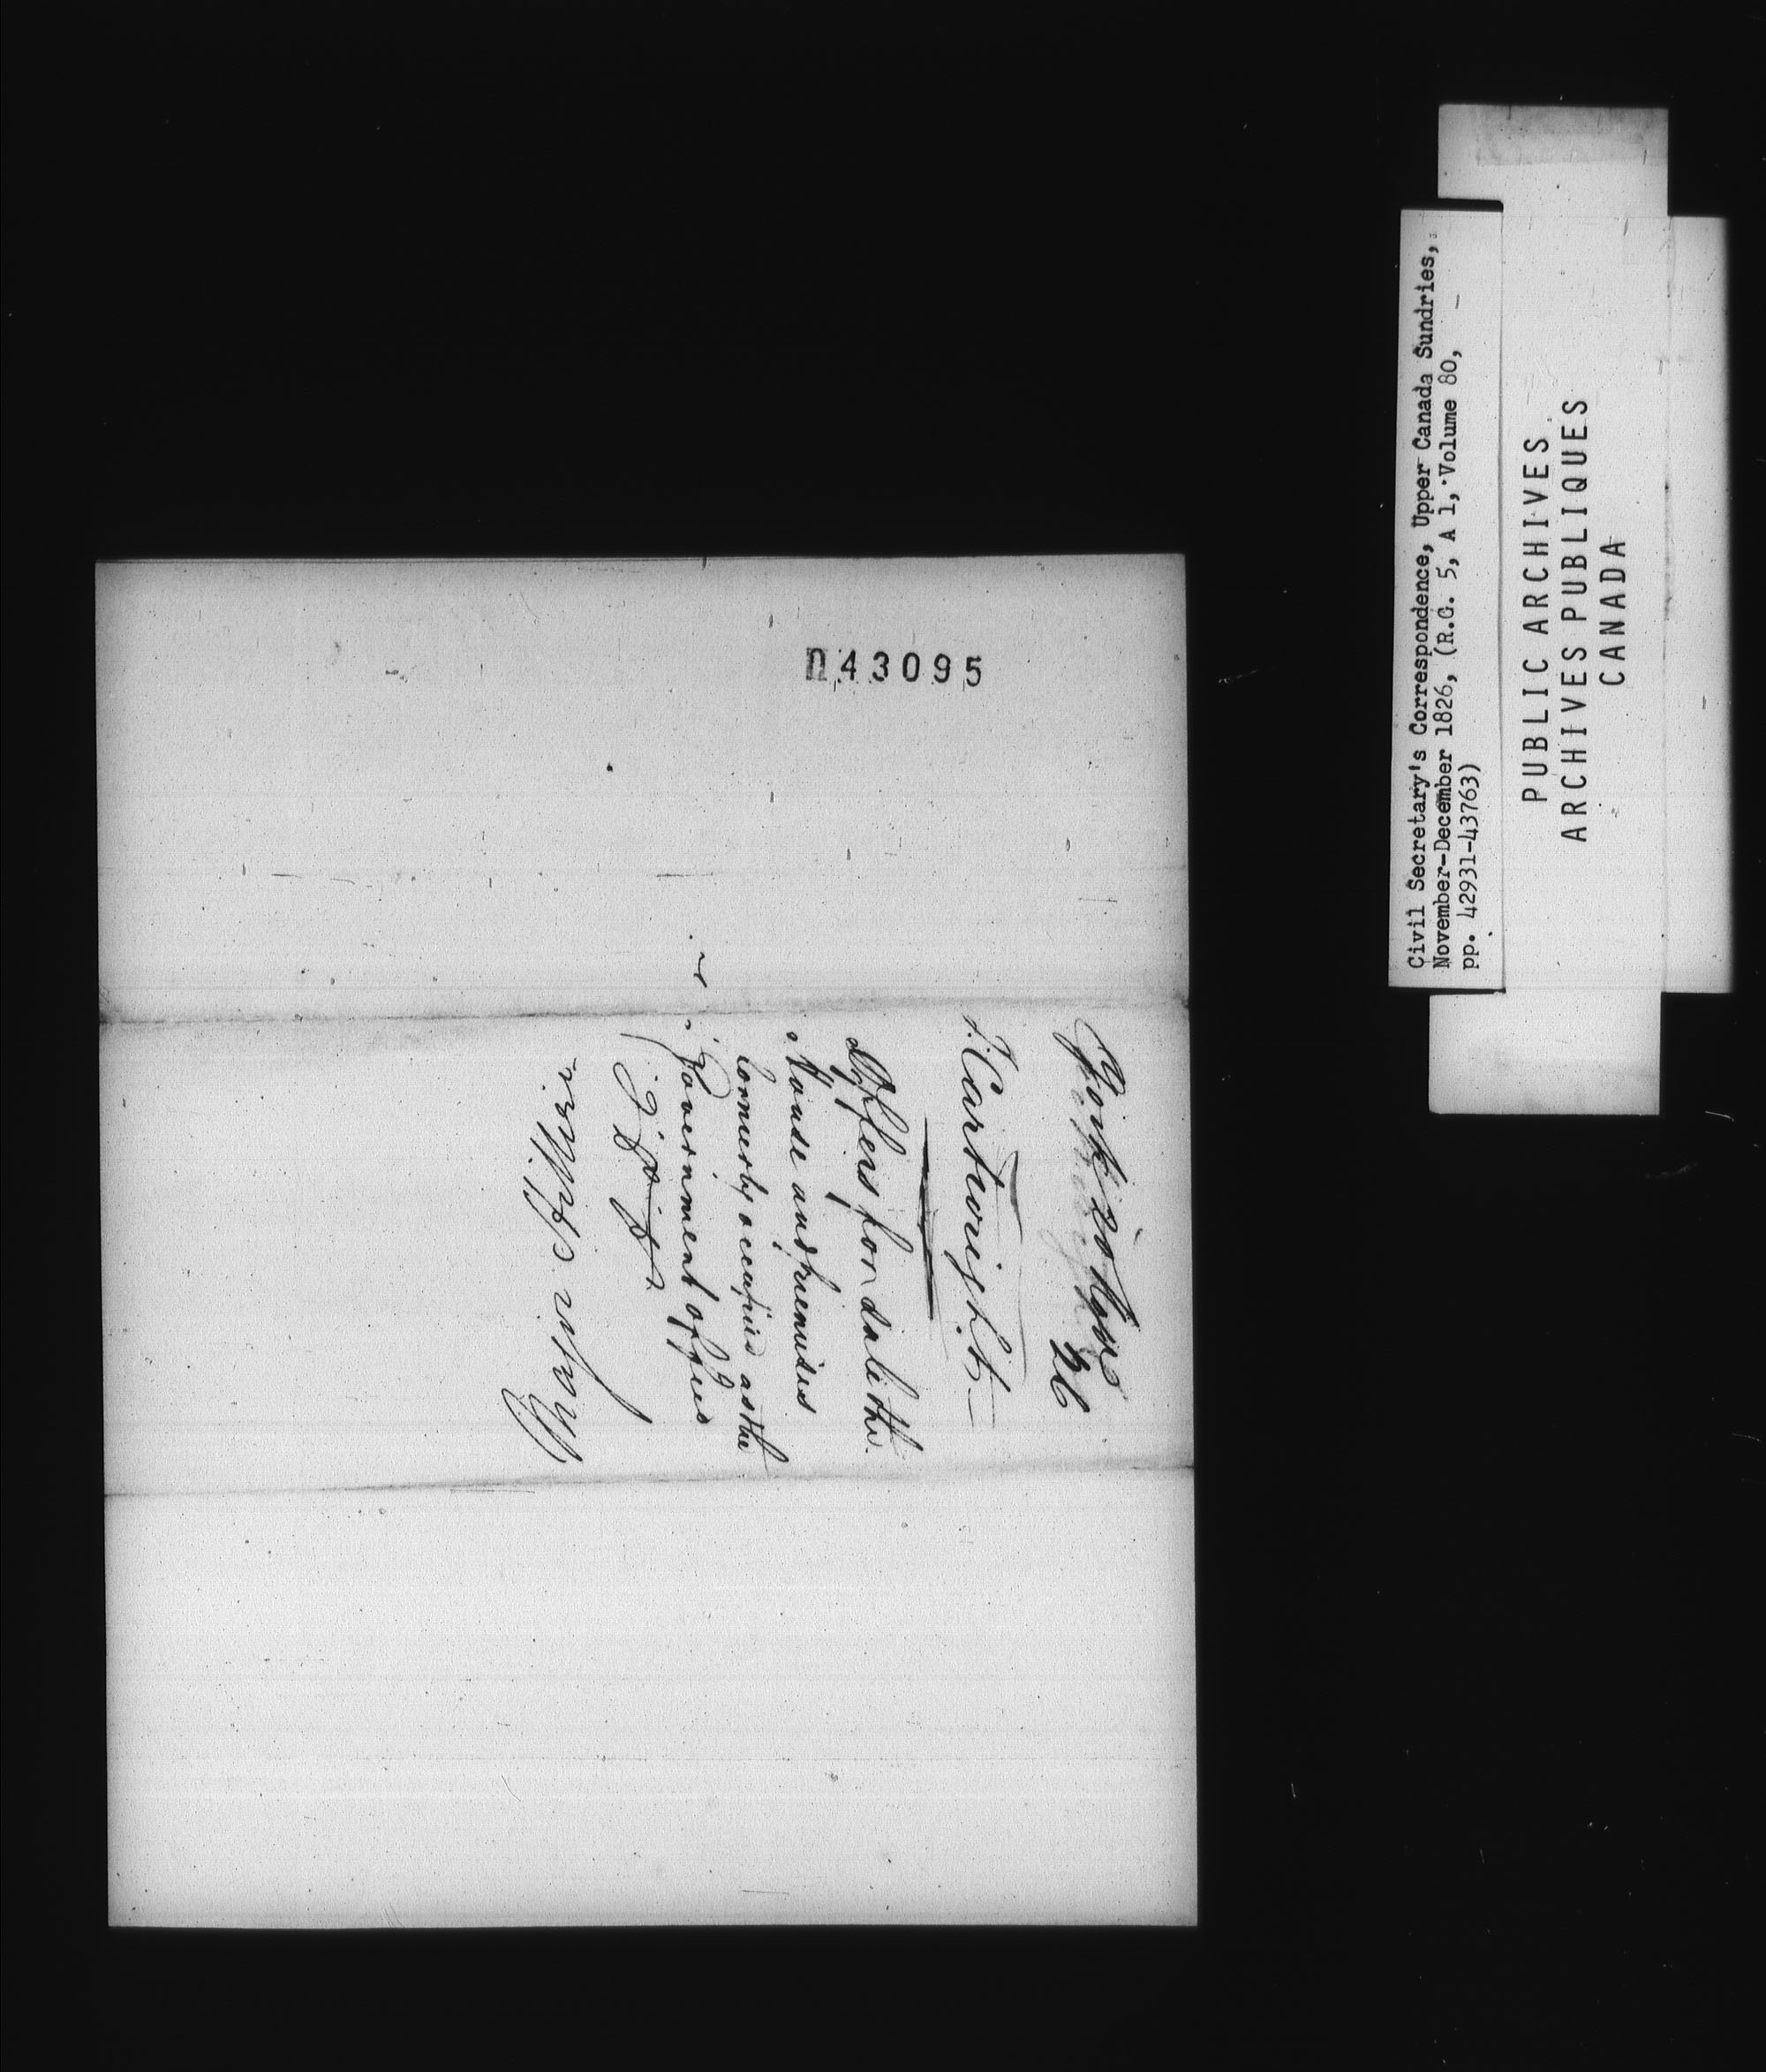 043095
York 20 Novr
26
J. Cartwright
Offers for sale the
House and premises
formerly occupied as the
Government offices
Major Hillier
Civil Secretary's Correspondence, Upper Canada Sundries,
November-December 1826, (R.G. 5, A 1, Volume 80,
pp. 42931-43763)
PUBLIC ARCHIVES
ARCHIVES PUBLIQUES
CANADA